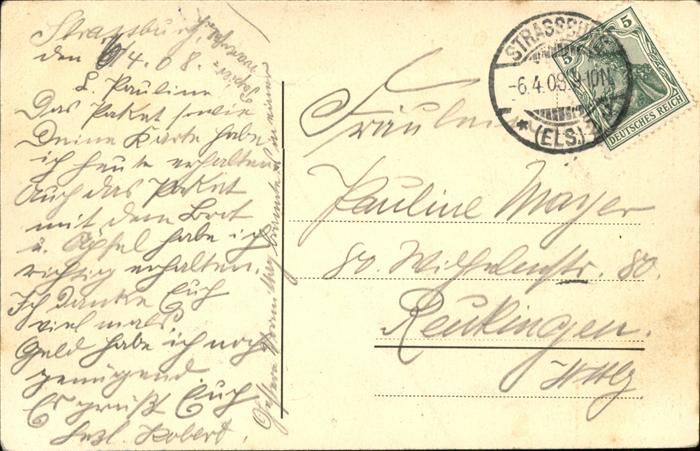 Strassburg,
den 6/4.08.
L. Pauline
Das Paket sowie
Deine Karte habe
ich heute erhalten
Auch das Paket
mit dem Brot
u. Äpfel habe ich
richtig erhalten.
Ich danke Euch
viel mals
Geld habe ich noch
genügend
Es grüßt Euch
herzl. Robert.
Gestern
STRASSBURG
-6.4.08.9-10N.
* (ELS.) 3
5
5
DEUTSCHES REICH
Fräulein
Pauline Mayer
80. Wilhelmstr. 80.
Reutlingen.
Wttbg